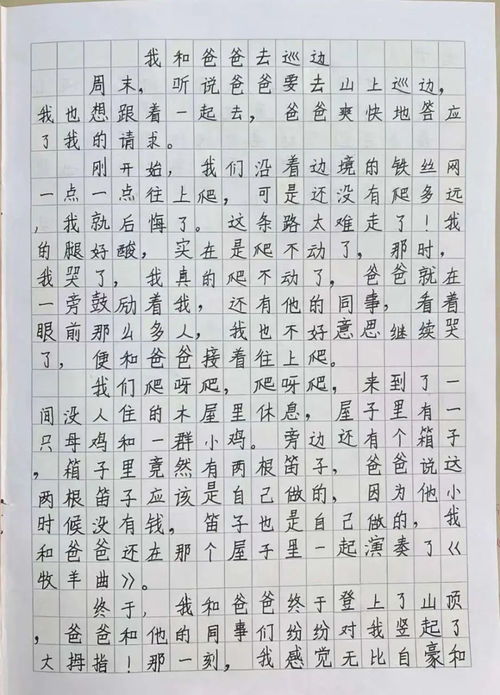 我和爸爸去巡边
周末，听说爸爸要去山上巡边，
我也想跟着一起去，爸爸爽快地答应
了我的请求。
刚开始，我们沿着边境的铁丝网
一点一点往上爬，可是还没有爬多远
，我就后悔了。这条路太难走了！我
的腿好酸，实在是爬不动了，那时，
我哭了，我真的爬不动了，爸爸就在
一旁鼓励着我，还有他的同事，看着
眼前那么多人，我也不好意思继续哭
了，便和爸爸接着往上爬。
我们爬呀爬，爬呀爬，来到了一
间没人住的木屋里休息，屋子里有一
只母鸡和一群小鸡。旁边还有个箱子
，箱子里竟然有两根笛子，爸爸说这
两根笛子应该是自己做的，因为他小
时候没有钱，笛子也是自己做的，我
和爸爸还在那个屋子里一起演奏了《
牧羊曲》。
终于，我和爸爸终于登上了山顶
，爸爸和他的同事们纷纷对我竖起了
大拇指！那一刻，我感觉无比自豪和